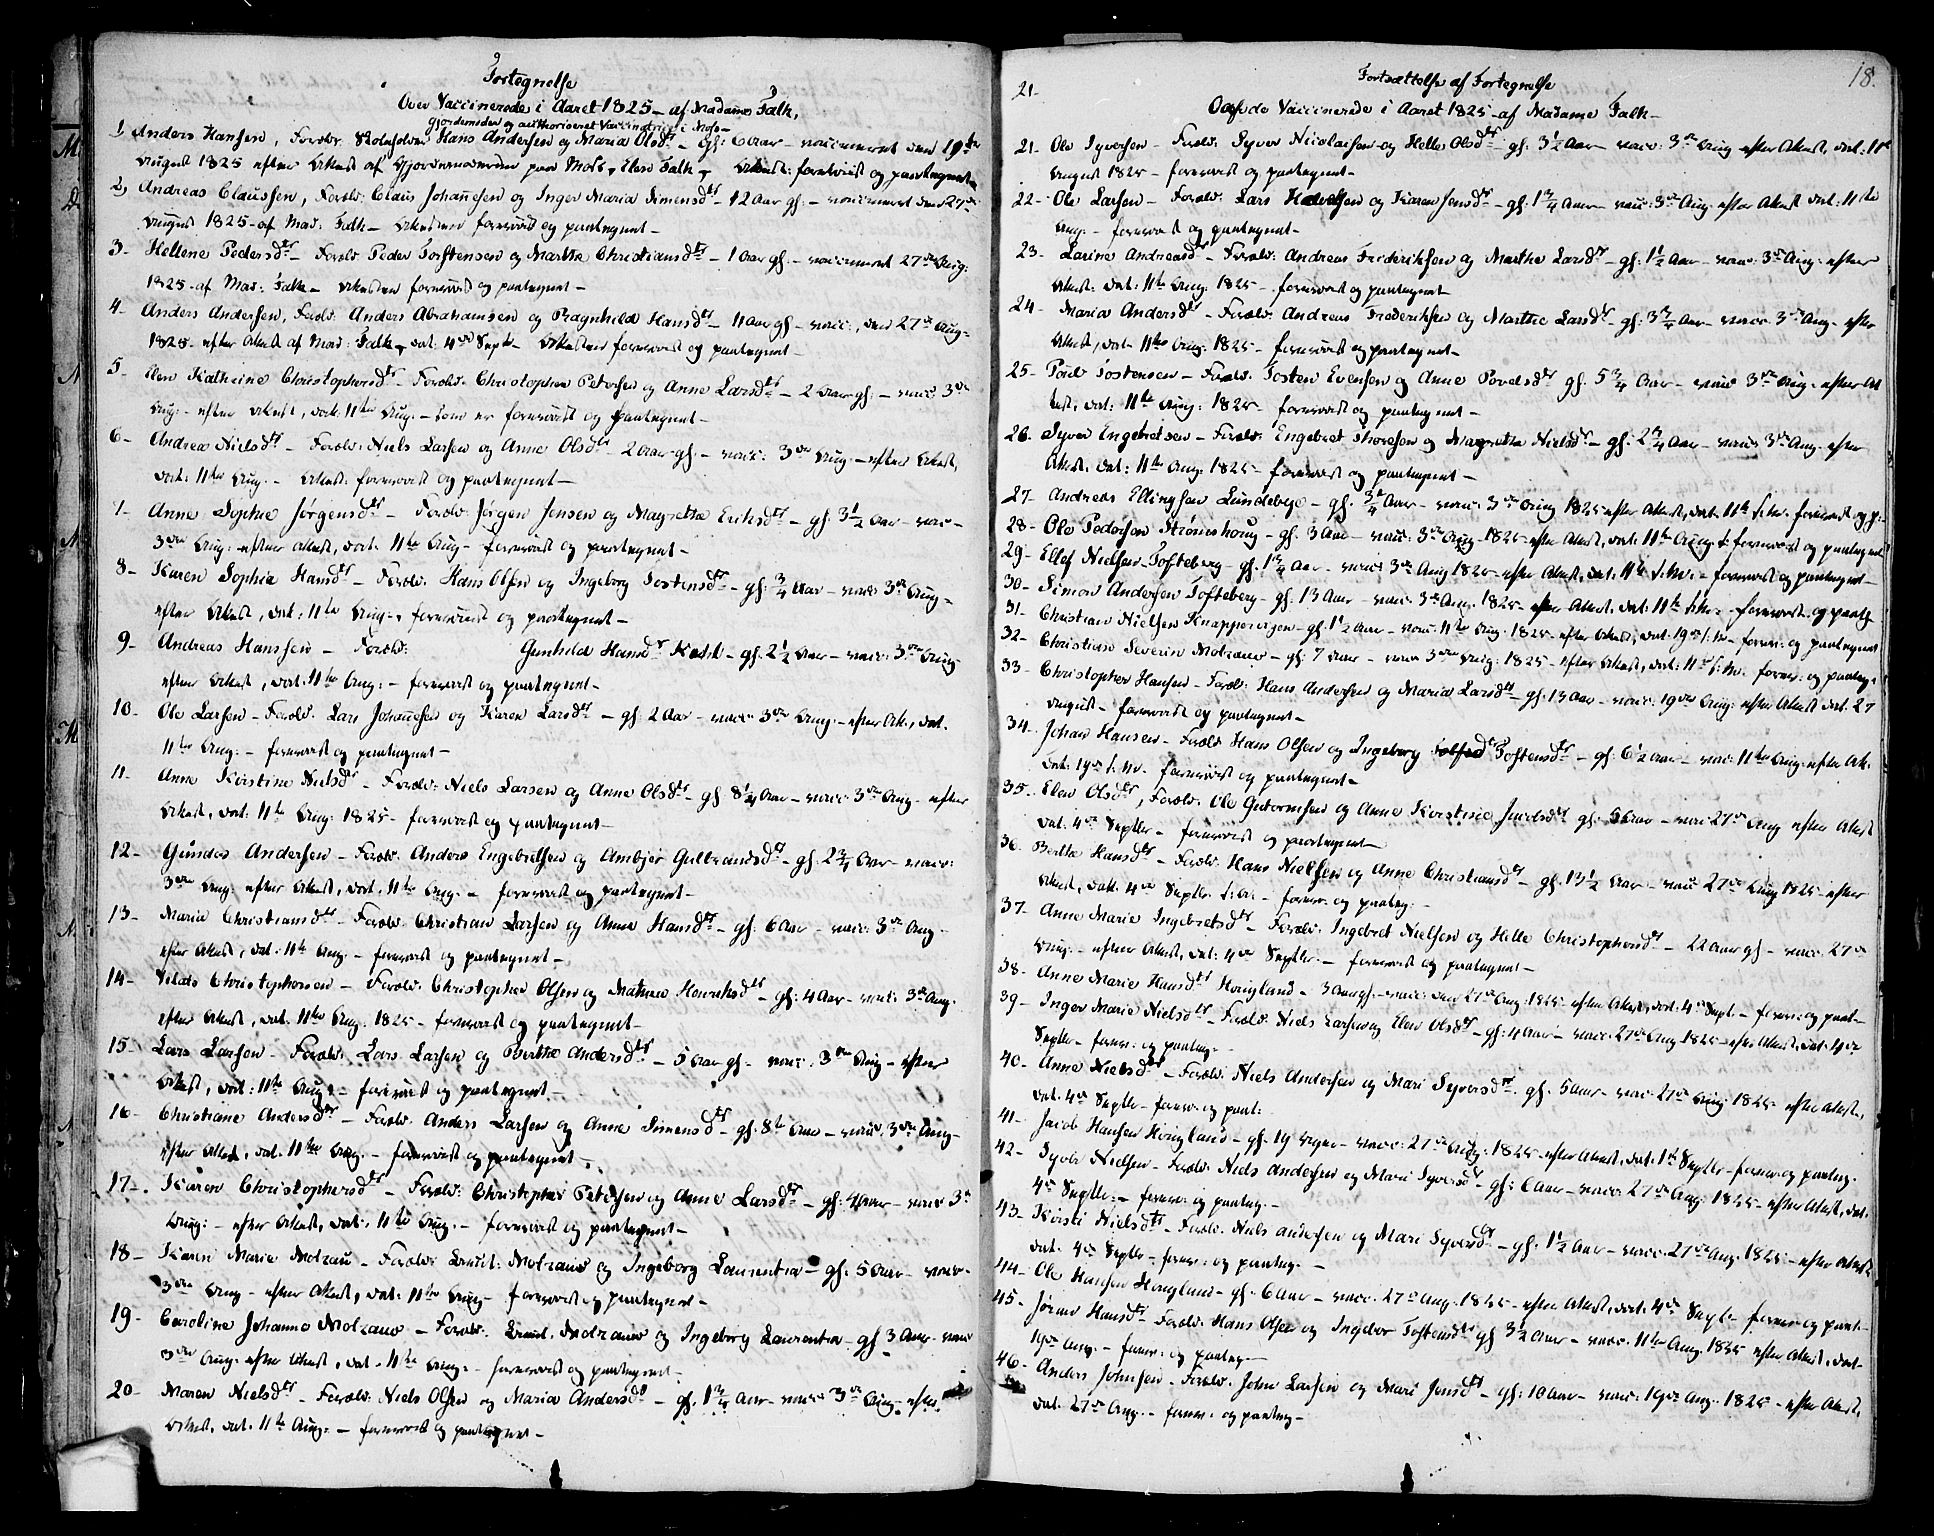 Fortegnelse
Over Vaccinerede i Aaret 1825 - af Madame Falk,
Gjordemoder og authoriseret Vaccinatrice i Moss -
1, Anders Hansen, Foræld: Skoleholder Hans Andersen og Maria Olsdtr - gl: 6 Aar - vaccineret den 19de
August 1825 efter Attest af Gjordemoderen paa Moss, Elen Falk, Attest: foreviist og paategnet -
2, Andreas Claussen, Foræld: Claus Johannesen og Inger Maria Simensdtr - 12 Aar gl: - vaccineret den 27de
August 1825 - af Mad: Falk - Attesten foreviist og paategnet -
3 - Hellene Pedersdtr - Foræld: Peder Torstensen og Marthe Christiansdtr - 1 Aar gl: - vaccineret 27de Aug:
1825 - af Mad: Falk - Attesten foreviist og paategnet -
4 - Anders Andersen, Foræld: Anders Abrahamsen og Ragnhild Hansdtr - 11 Aar gl - vacc:, den 27de Aug:
1825 - efter Attest af Mad: Falk, dat: 4de Septb - Attesten foreviist og paategnet -
5 - Elen Kathrine Christophersdtr - Foræld: Christopher Petersen og Anne Larsdtr - 2 Aar gl: - vacc: 3de
Aug: - efter Attest, dat: 11te Aug: - som er foreviist og paategnet -
6 - Andrea Nielsdtr - Foræld: Niels Larsen og Anne Olsdtr 2 Aar gl: - vacc: 3de Aug: - efter Attest,
dat: 11te Aug: - Attest: foreviist og paategnet -
7 - Anne Sophie Jørgensdtr - Foræld: Jørgen Jensen og Magrethe Eriksdtr - gl: 3½ Aar - vacc -
3de Aug: efter Attest, dat: 11te Aug - foreviist og paategnet -
8 - Karen Sophia Hansdtr - Foræld: Hans Olsen og Ingeborg Tostensdtr - gl: ¾ Aar - vacc: 3de Aug -
efter Attest, dat: 11te Aug: - foreviist og paategnet -
9 - Andreas Hanssen - Foræld: Gunhild Hansdtr - gl: 2½ Aar - vacc: 3de Aug -
efter Attest, dat: 11te Aug: - foreviist og paategnet -
10 - Ole Larsen - Foræld: Lars Johannesen og Karen Larsdtr - gl: 2 Aar - vacc: 3de Aug: - efter Att:, dat:
11te Aug: - foreviist og paategnet -
11 - Anne Kirstine Nielsdtr - Foræld: Niels Larsen og Anne Olsdtr - gl 8¼ Aar - vacc: 3de Aug - efter
Attest, dat: 11te Aug: 1825 - foreviist og paategnet -
12 - Gunder Andersen - Foræld: Anders Engebretsen og Ambjør Gulbrandsdtr - gl: 2¾ Aar - vacc:
3de Aug: efter Attest, dat: 11te Aug: - foreviist og paategnet -
13 - Maria Christiansdtr - Foræld: Christian Larsen og Anne Hansdtr - gl: 6 Aar - vacc: 3de Aug -
efter Attest, dat: 11te Aug: - foreviist og paategnet -
14 - Christophersen - Foræld: Christopher Olsen og Henrichsdtr - gl: 4 Aar - vacc: 3de Aug:
efter Attest, dat: 11te Aug: 1825 - foreviist og paategnet -
15 - Lars Larsen - Foræld: Lars Larsen og Berthe Andersdtr - 5 Aar gl: - vacc: 3de Aug - efter
Attest, dat: 11te Aug: - foreviist og paategnet -
16 - Christiane Andersdtr - Foræld: Anders Larsen og Anne Simensdtr - gl: Aar - vacc: 3de Aug -
efter Attest, dat: 11te Aug: - foreviist og paategnet -
17 - Karen Christophersdtr - Foræld: Christopher Petersen og Anne Larsdtr - gl: 4 Aar - vacc 3de
Aug: - efter Attest, dat: 11te Aug: - foreviist og paategnet -
18 - Karen Maria Molzau - Foræld: Molzau og Ingeborg Laurentia - gl: 5 Aar - vacc -
3de Aug - efter Attest, dat: 11te Aug - foreviist og paategnet -
19 - Caroline Johanna Molzau - Foræld: Molzau og Ingeborg Laurentia - gl 3 Aar - vacc
3de Aug: efter Attest, dat: 11te Aug: - foreviist og paategnet -
20 - Maren Nielsdtr - Foræld: Niels Olsen og Maria Andersdtr - gl: 1¾ Aar - vacc: 3de Aug - efter
Attest, dat: 11te Aug: - foreviist og paategnet -
18.
21 - Fortsættelse af Fortegnelse
Over de Vaccinerede i Aaret 1825 - af Madame Falk -
21 - Ole Syversen - Foræld: Syver Nicolaisen og Helle Olsdtr - gl: 3½ Aar - vacc: 3de Aug efter Attest, dat: 11te
August 1825 - foreviist og paategnet -
22 - Ole Larsen - Foræld: Lars og Karen Jensdtr - gl: 1¾ Aar - vacc: 3de Aug: efter Attest dat: 11te
Aug: - foreviist og paategnet -
23 - Larine Andreasdtr - Foræld: Andreas Frederiksen og Marthe Larsdtr - gl: 1½ Aar - vacc: 3de Aug: efter
Attest: dat: 11te Aug: 1825 - foreviist og paategnet -
24 - Maria Andersdtr - Foræld: Andreas Frederiksen og Marthe Larsdtr - gl: 3¾ Aar - vacc: 3de Aug - efter
Attest, dat: 11te Aug: 1825 - foreviist og paategnet -
25 - Poul Tostensen - Foræld: Tosten Evensen og Anne Povelsdtr gl: 5¾ Aar - vacc 3de Aug: efter At
test, dat: 11te Aug: 1825 - foreviist og paategnet -
26 - Syver Engebretsen - Foræld: Engebret Thoresen og Magrethe Nielsdtr - gl: 2¾ Aar - vacc: 3de Aug: efter
Attest, dat: 11te Aug: 1825 - foreviist og paategnet -
27 - Andreas Ellingsen Lundebye - gl: ¾ Aar - vacc: 3de Aug 1825 efter Attest, dat: 11te s: M: foreviist og p:
28 - Ole Pedersen Strømshoug - gl: 3 Aar - vacc: 3de Aug - 1825 - efter Attest, dat: 11te Aug: foreviist og paategnet
29 - Ellef Nielsen Tofteberg - gl: 1¾ Aar - vacc: 3de Aug 1825 - efter Attest, dat: 11te s: M: - foreviist og paategnet -
30 - Simon Andersen Tofteberg - gl: 13 Aar - vacc: 3de Aug: 1825 - efter Attest, dat: 11te s: M: - foreviist og paateg -
31 - Christian Nielsen Knappervigen - gl: 1½ Aar - vacc: 11te Aug: 1825 - efter Attest, dat: 19de s: M - forev: og paategnet
32 - Christian Severin Molzau - gl: 7 Aar - vacc 3de Aug: 1825 - efter Attest, dat: 11te s: M: forev: og paateg -
33 - Christopher Hansen - Foræld: Hans Andersen og Maria Larsdtr - gl: 13 Aar - vacc: 19de Aug: efter Attest dat: 27
August - foreviist og paategnet -
34 - Johan Hansen - Foræld: Hans Olsen og Ingeborg Tostensdtr - gl: 6½ Aar - vacc: 11te Aug: efter At:
dat: 19de s: M - foreviist og paategnet -
35 - Elen Olsdtr, Foræld: Ole Guttormsen og Anne Kirstine gl: 5 Aar - vacc: 27de Aug efter Attest
dat: 4de Septbr - foreviist og paategnet -
36 - Berthe Hansdtr - Foræld: Hans Nielsen og Anne Christiansdtr - gl: 13½ Aar - vacc 27de Aug 1825 - efter
Attest, dat: 4de Septbr s: A: - forev: og paateg: -
37 - Anne Marie Ingebretsdtr - Foræld: Ingebret Nielsen og Helle Christophersdtr - 22 Aar gl - vacc: 27de
Aug: - efter Attest, dat: 4de Septbr: - foreviist og paategnet -
38 - Anne Marie Hansdtr Hougland - 3 Aar gl: - vacc: den 27de Aug: 1825 - efter Attest, dat: 4de Sept: - forev: og paat -
39 - Inger Marie Nielsdtr - Foræld: Niels Larsen og Elen Olsdtr - gl: 4 Aar - vacc: 27de Aug 1825 - efter Attest, dat: 4de
Septbr - forev: og paateg: -
40 - Anne Nielsdtr - Foræld: Niels Andersen og Mari Syversdtr - gl: 5 Aar - vacc: 27de Aug: 1825 - efter Attest,
dat: 4de Septbr - forev: og paat:
41 - Jacob Hansen Hougland - gl: 19 Uger - vacc: 27de Aug: 1825 - efter Attest, dat: Septbr - forev: og paateg -
42 - Syver Nielsen - Foræld: Niels Andersen og Mari Syversdtr - gl: 6 Aar - vacc: 27de Aug: 1825 - efter Attest, dat:
4de Septbr: - forev: og paateg: -
43 - Kirsti Nielsdtr - Foræld: Niels Andersen og Mari Syversdtr - gl: 1½ Aar - vacc: 27de Aug: 1825 - efter Attest
dat: 4de Septbr - forev: og paateg: -
44 - Ole Hansen Hougland - gl: 6 Aar - vacc: 27de Aug: 1825 - efter Attest, dat: 4de Septbr forev: og paat -
45 - Hansdtr - Foræld: Hans Olsen og Ingebor Tostensdtr gl 3½ Aar - vacc: 11te Aug: 1825 efter Attest, dat -
19de Aug: - forev: og paateg: -
46 - Anders Johnsen - Foræld: John Larsen og Mari Jensdtr - gl: 10 Aar - vacc: 19de Aug: 1825 - efter Attest,
dat: 27de Aug: - forev: og paateg -